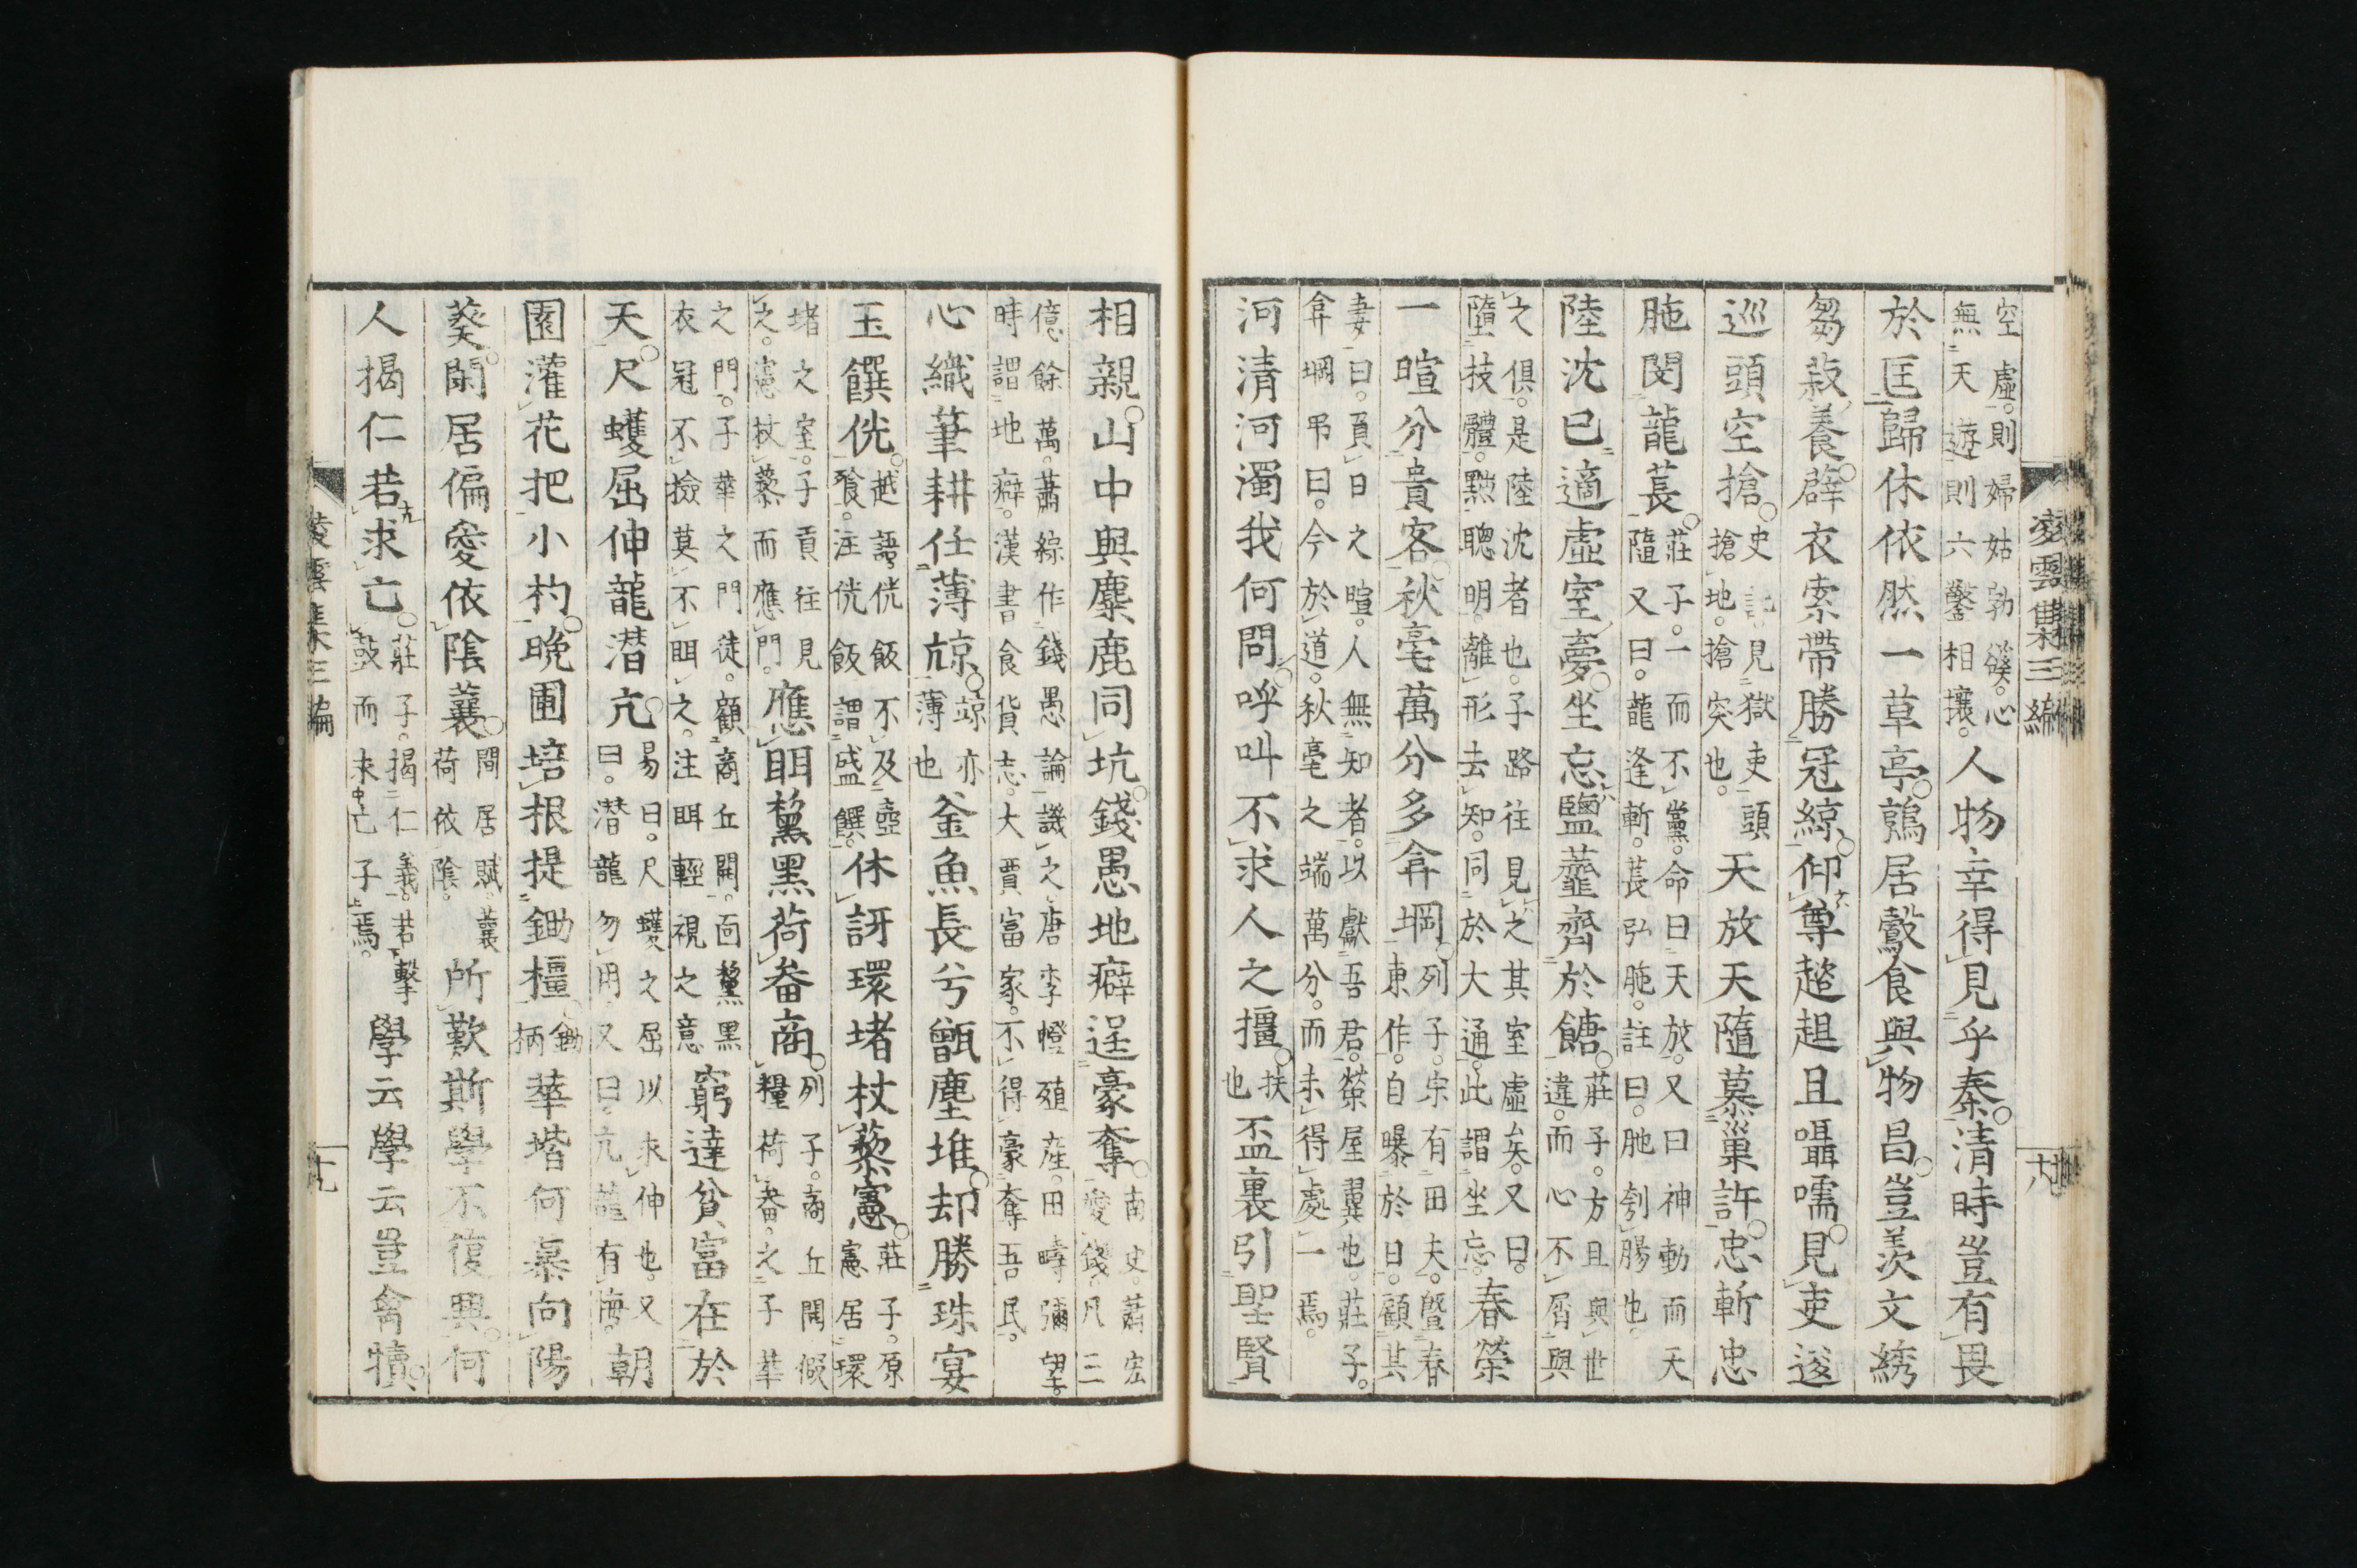 空虛。則婦姑勃谿。心
無天遊則六鑿相攘。人物幸得見乎秦。清時豈有畏
於匡歸休依然一草亭。鶉居鷇食與物昌。豈羨文綉
芻菽養。薜衣索帶勝冠綜。仰尊趑趄且囁嚅。見吏逡
巡頭空搶。史記見獄吏頭
搶地。搶突也。天放天天隨慕巢許。忠斬忠
胣閔龍萇。莊子。一而不黨。命曰天放。又曰神動而天
隨又曰。龍逢斬。萇弘胣。註曰。胣刳腸也。
陸沈已適虛室夢。坐忘鹽虀齊於餹。莊子。方且與世
違。而心不屑與
之俱。是陸沈者也。子路往見之其室虛矣。又曰。
墮技體。黜聰明。離形去知。同於大通。此謂坐忘。春榮
一暄分貴客。秋毫萬分多弇堈。列子。宋有田夫。曁春
東作。自曝於日。顧其
妻曰。負日之暄。人無知者。以獻吾君。榮屋翼也。莊子。
弇堈弔曰。今於道。秋毫之端萬分。而未得處一焉。
河清河濁我何問。呼叫不求人之擡。扶
也盃裏引聖賢
凌雲集三編
十八
相親。山中與麋鹿同坑。錢愚地癖逞豪奪。南史。蕭宏
愛錢。凡三
億餘萬。蕭綜作錢愚論譏之。唐李憕殖產。田疇彌望
時謂地癖。漢書食貨志。大賈富家。不得豪奪吾民。
心織筆耕任薄䣼。䣼亦
薄也釜魚長兮甑塵堆。却勝珠宴
玉饌侊。越語。侊飯不及壺
飱。注侊飯謂盛饌。休訝環堵杖藜憲。莊子。原
憲居環
堵之室。子貢往見
之。憲杖藜而應門。應眲黧黑荷畚商。列子。商丘開假
糧荷畚。之子華
之門。子華之門徒。顧商丘開。面黧黑
衣冠不撿莫不眲之。注眲輕視之意窮達貧富在於
天。尺蠖屈伸龍潜亢。易曰。尺蠖之屈以求伸也。又
曰。潜龍勿用又曰。亢龍有悔。朝
園灌花把小杓。晚圃培根提鋤橿。鋤
柄華堦何慕向陽
葵。閑居偏愛依陰蘘。間居賦。蘘
荷依陰。所歎斯學不復興。何
人揭仁若求亡。莊子。揭仁義。若擊
鼓而求亡子焉。學云學云豈禽犢。
凌雲集三編
十九